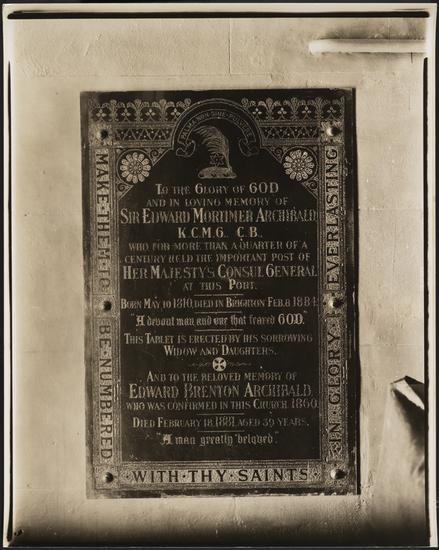 PALMA NON SINE PULVERE
TO THE GLORY OF GOD
AND IN LOVING MEMORY OF
SIR EDWARD MORTIMER ARCHIBALD
K.C.M.G., C.B.,
WHO FOR MORE THAN A QUARTER OF A
CENTURY HELD THE IMPORTANT POST OF
HER MAJESTY'S CONSUL GENERAL
AT THIS PORT.
BORN MAY 10 1810, DIED IN BRIGHTON FEB. 8 1884.
"A devout man and one that feared GOD."
THIS TABLET IS ERECTED BY HIS SORROWING
WIDOW AND DAUGHTERS.
AND TO THE BELOVED MEMORY OF
EDWARD BRENTON ARCHIBALD,
WHO WAS CONFIRMED IN THIS CHURCH 1860.
DIED FEBRUARY 18, 1881, AGED 39 YEARS.
"A man greatly beloved."
MAKE·THEM·TO·BE·NUMBERED
·WITH·THY·SAINTS·
·IN·GLORY·EVERLASTING